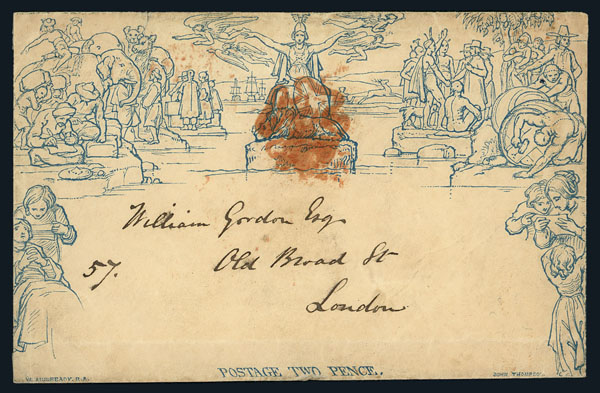 William Gordon Esq
57. Old Broad St
London
POSTAGE TWO PENCE.
W. MULREADY. R.A. JOHN THOMPSON